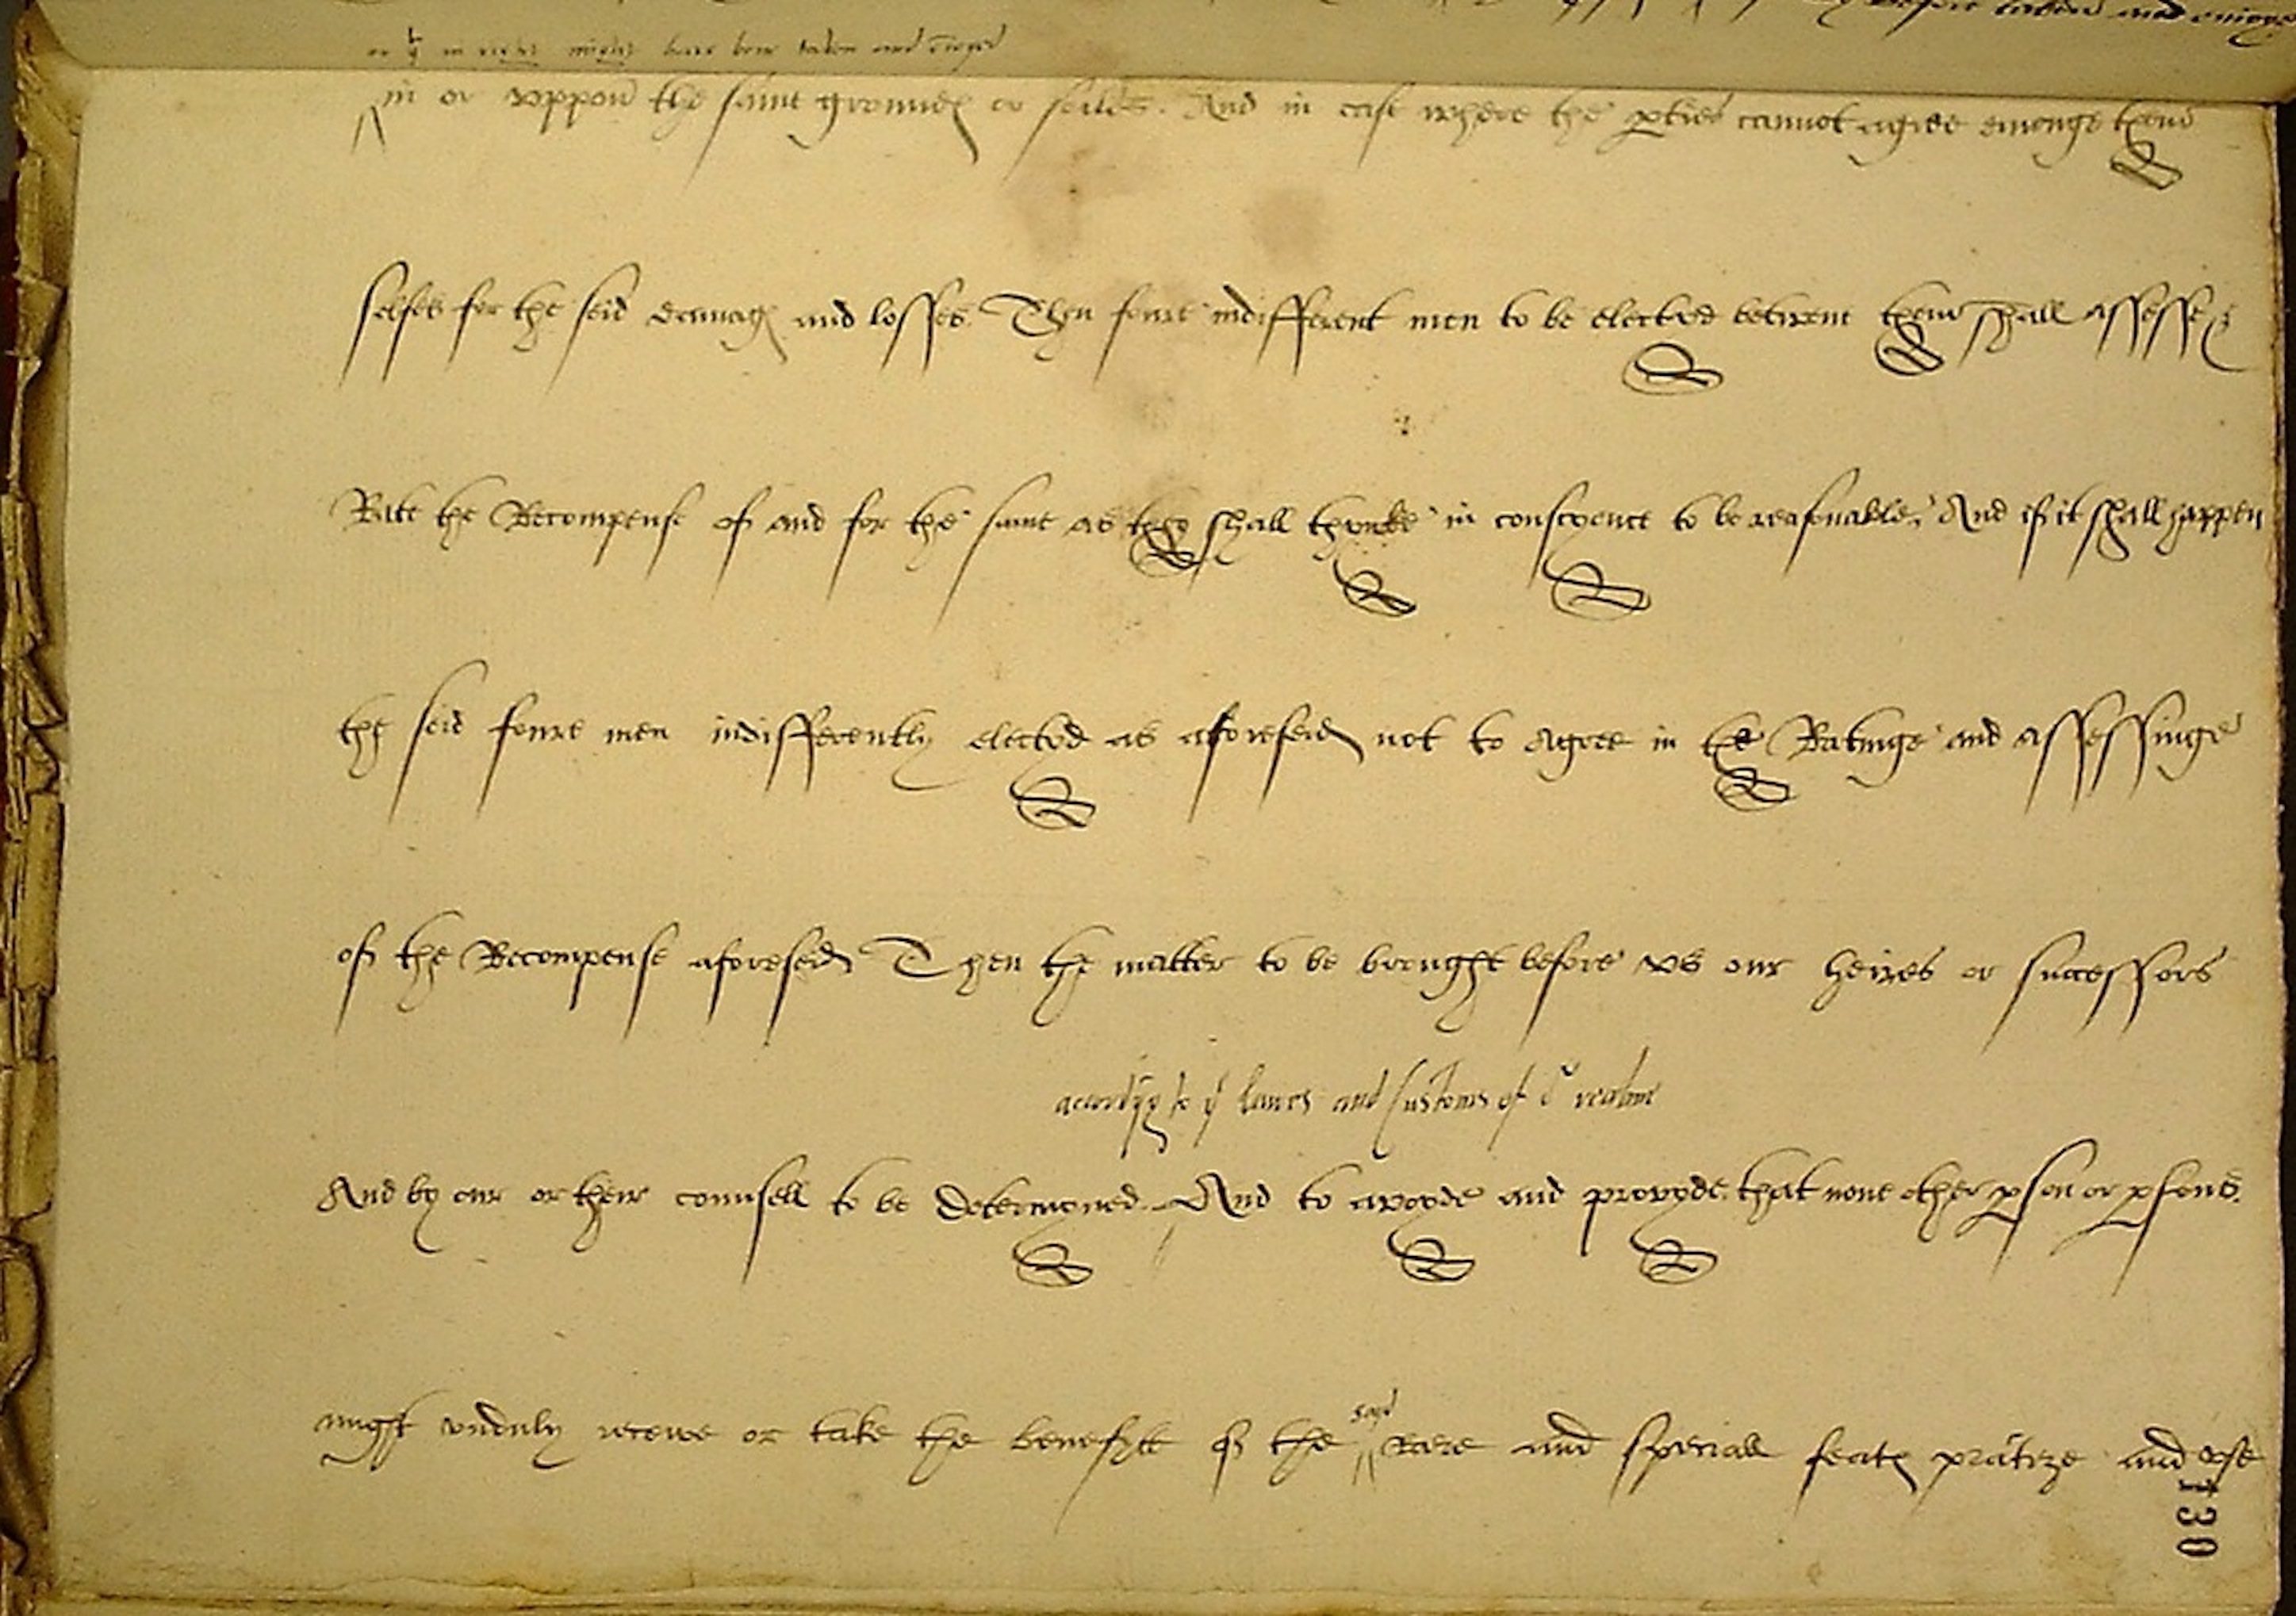 before taken and enioye
or yt in right might have bene taken and enioyed
in or vppon the same groundes or soiles. And in case where the pties cannot agree emonge them
selfes for the seid damages and losses. Then foure indifferent men to be elected betwene them shall assesse &
Rate the Recompense of and for the same as they shall thynke in conscyence to be reasonable. And if it shall happen
the seid foure men indifferently elected as aforeseid not to agree in the Ratinge and assessinge
of the Recompense aforeseid Then the matter to be brought before vs our heires or successors
accordyng to ye lawes and Customs of or realme
And by our or their counsell to be determyned. And to avoyde and provyde that none other pson or psons.
said
might vnduly receive or take the benefytt of the Rare and speciall feates practize and vse
130